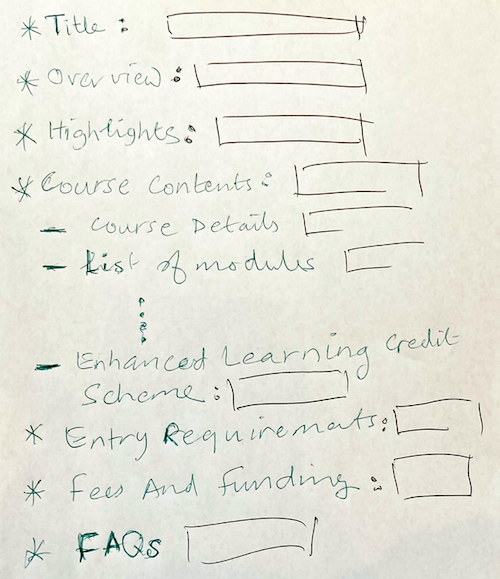 * Title :
* Overview :
* Highlights :
* Course Contents :
- Course Details
- List of modules
- Enhanced Learning Credit
Scheme :
* Entry Requirements :
* Fees And Funding :
* FAQs